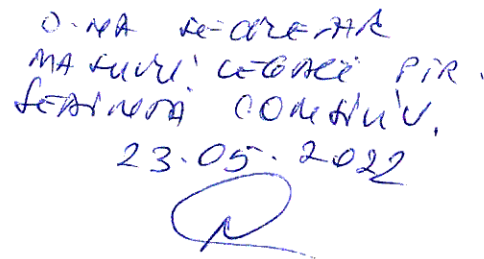 D-NA SECRETAR
MASURI LEGALE PTR.
SEDINTA CONSILIU.
23.05.2022